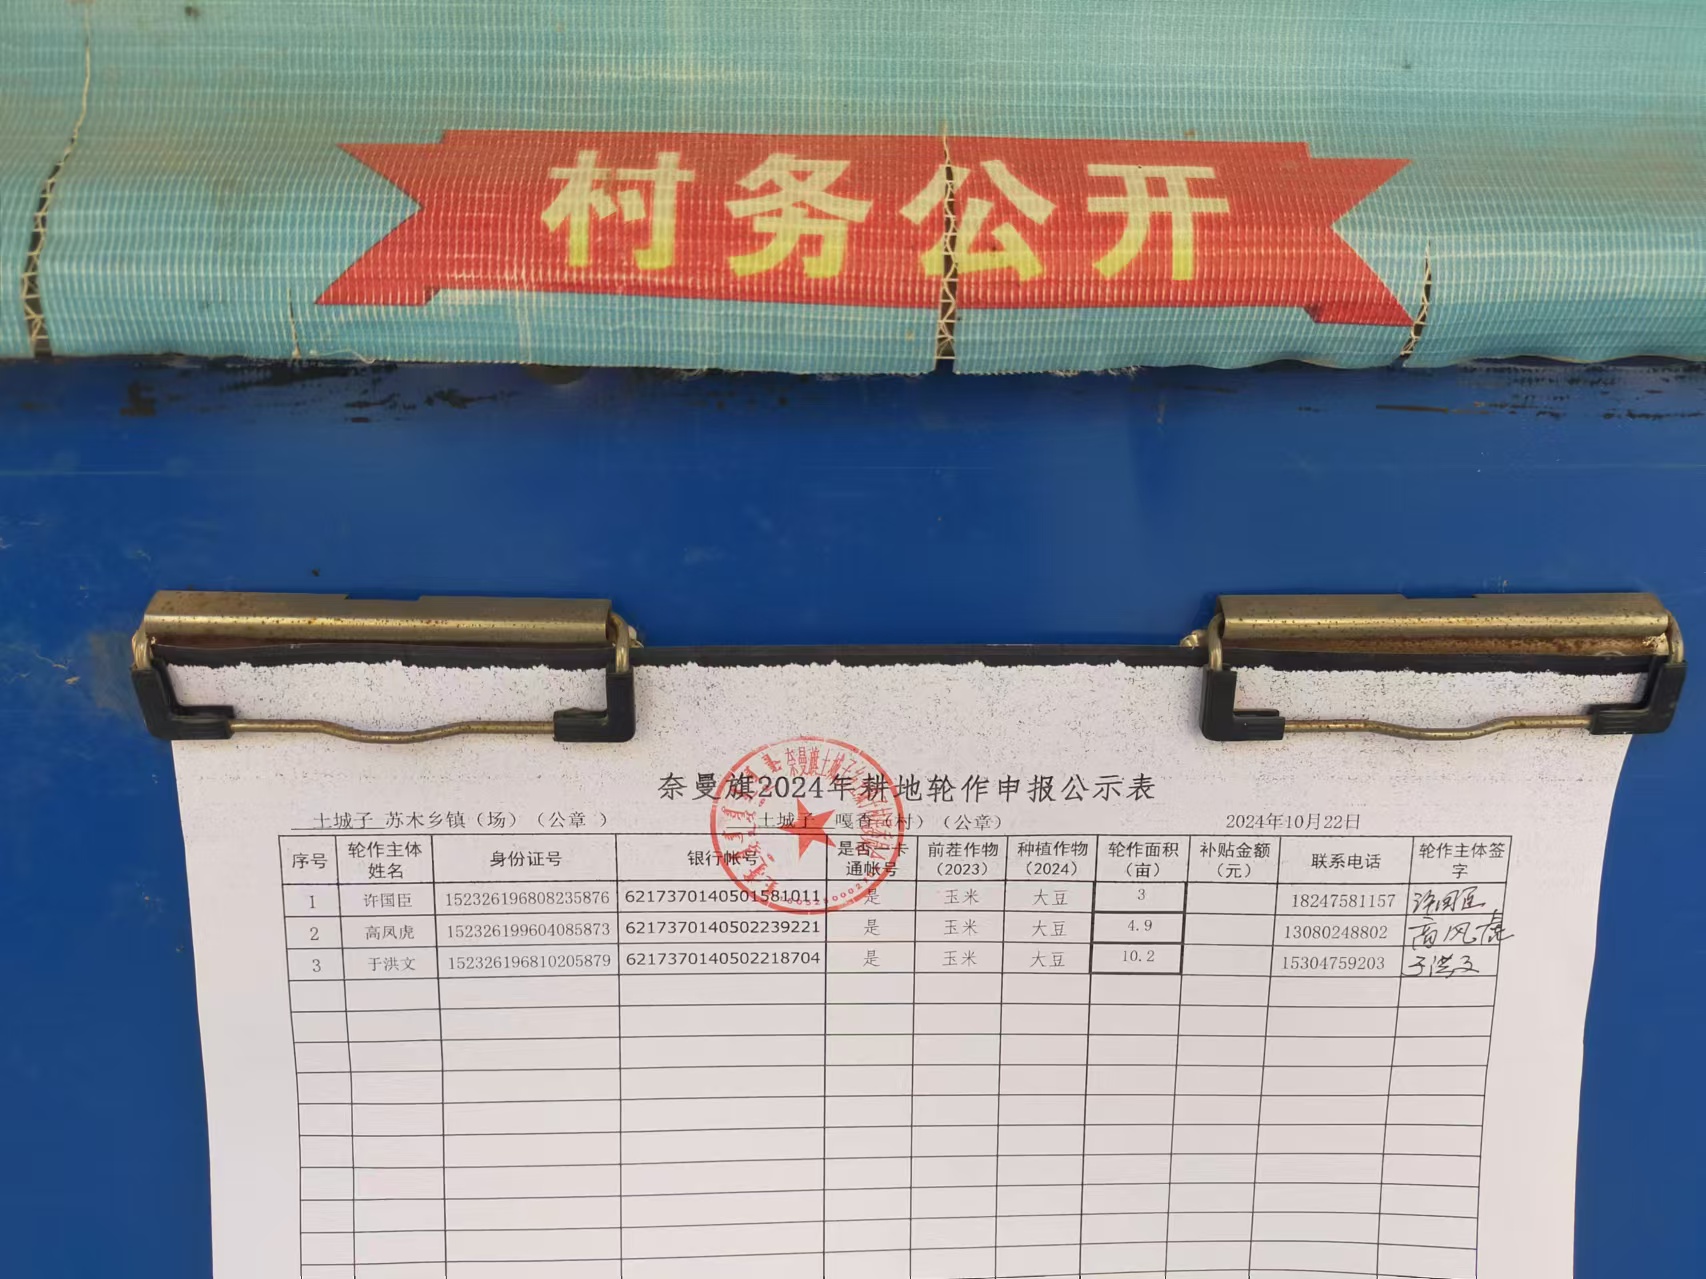 村务公开
奈曼旗2024年耕地轮作申报公示表
土城子 苏木乡镇（场）（公章 ） 土城子 嘎查（村）（公章） 2024年10月22日
序号 轮作主体姓名 身份证号 银行帐号 是否一卡通帐号 前茬作物（2023） 种植作物（2024） 轮作面积（亩） 补贴金额（元） 联系电话 轮作主体签字
1 许国臣 152326196808235876 6217370140501581011 是 玉米 大豆 3 18247581157 许国臣
2 高凤虎 152326199604085873 6217370140502239221 是 玉米 大豆 4.9 13080248802 高凤虎
3 于洪文 152326196810205879 6217370140502218704 是 玉米 大豆 10.2 15304759203 于洪文